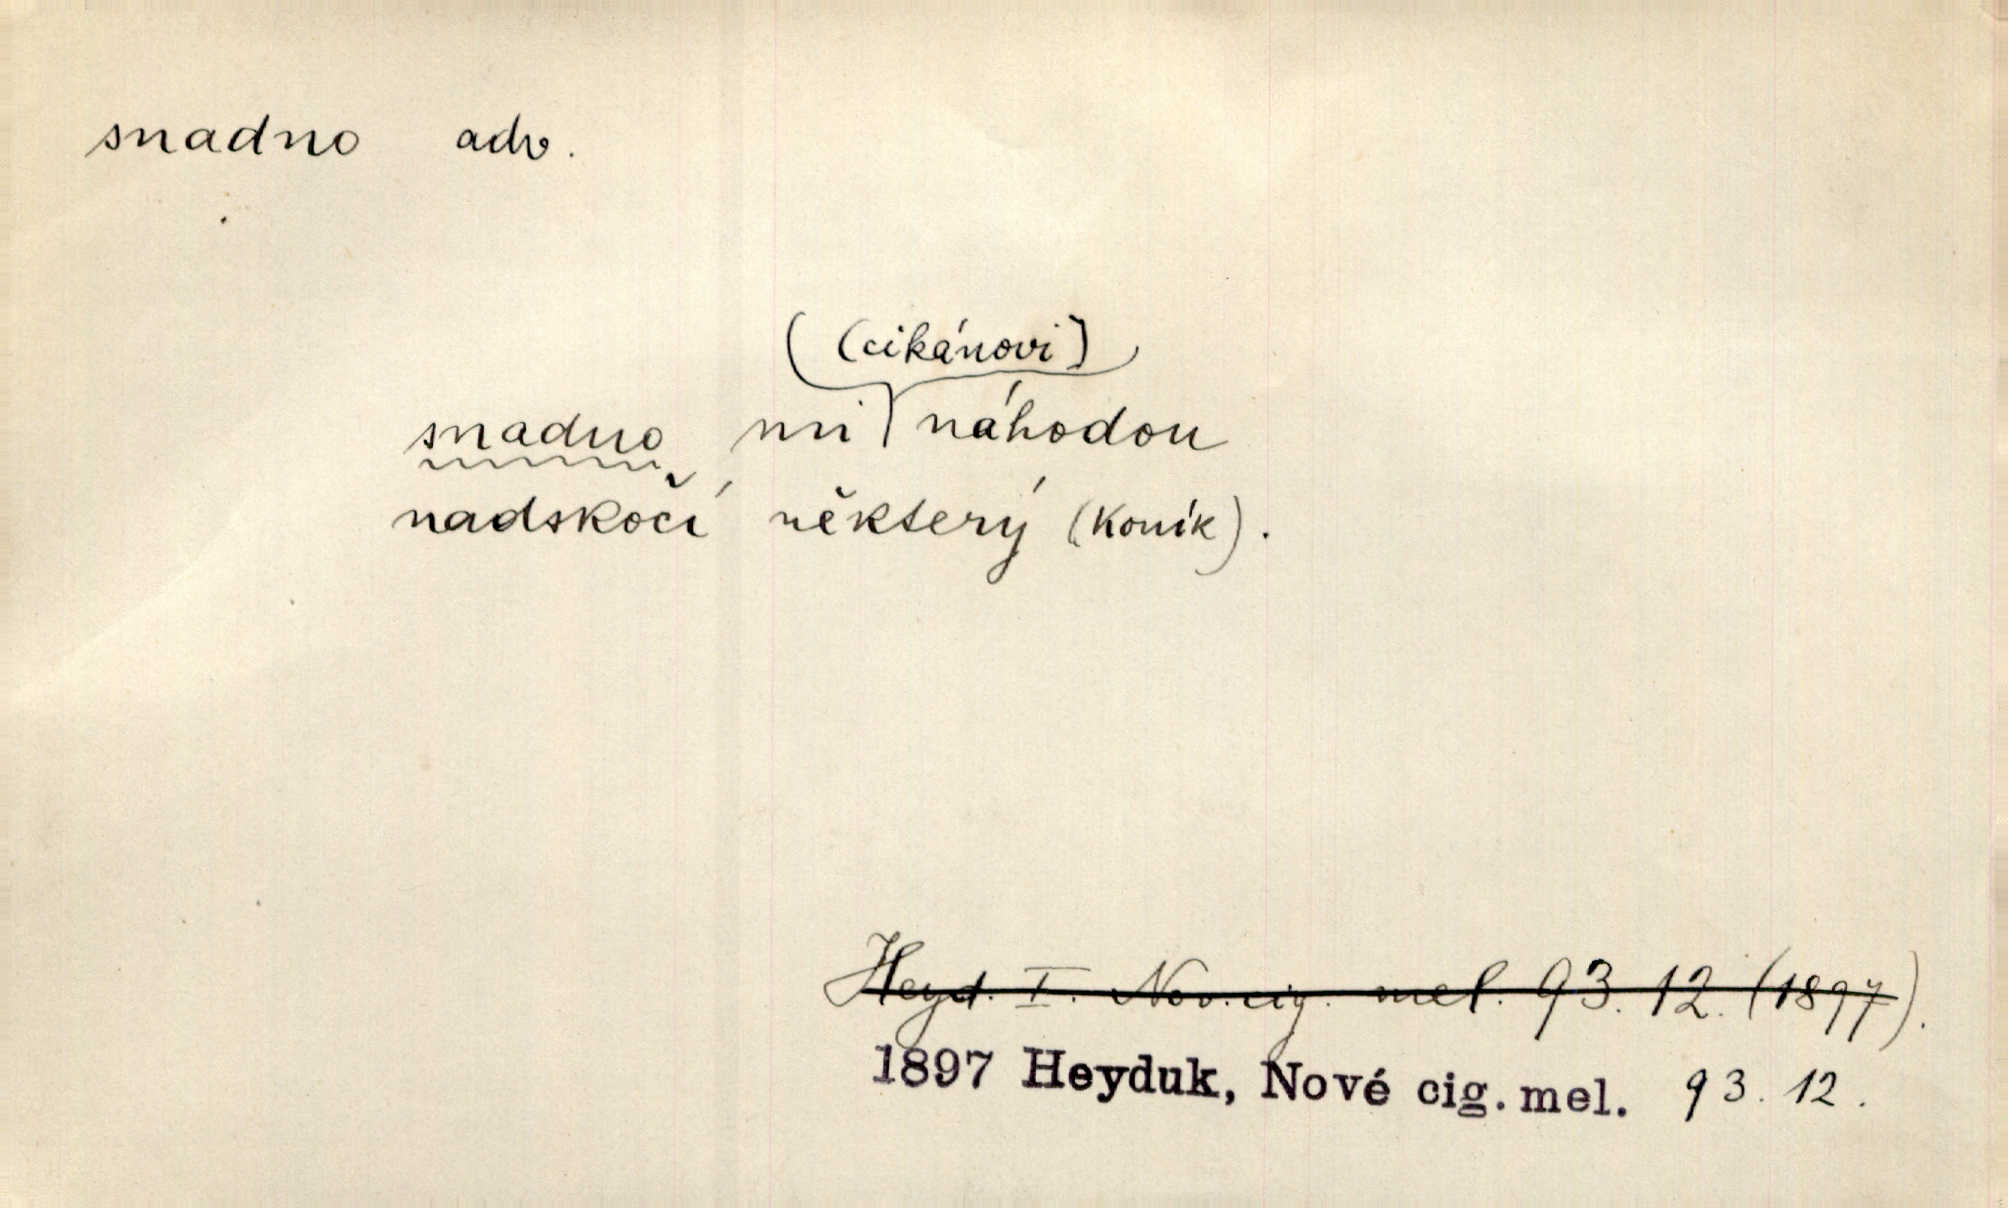 snadno adv.
(cikánovi)
snadno mi náhodou
nadskočí některý (koník).
Heyd. I. Nov. cig. mel. 93. 12. (1897).
1897 Heyduk, Nové cig. mel. 93. 12.